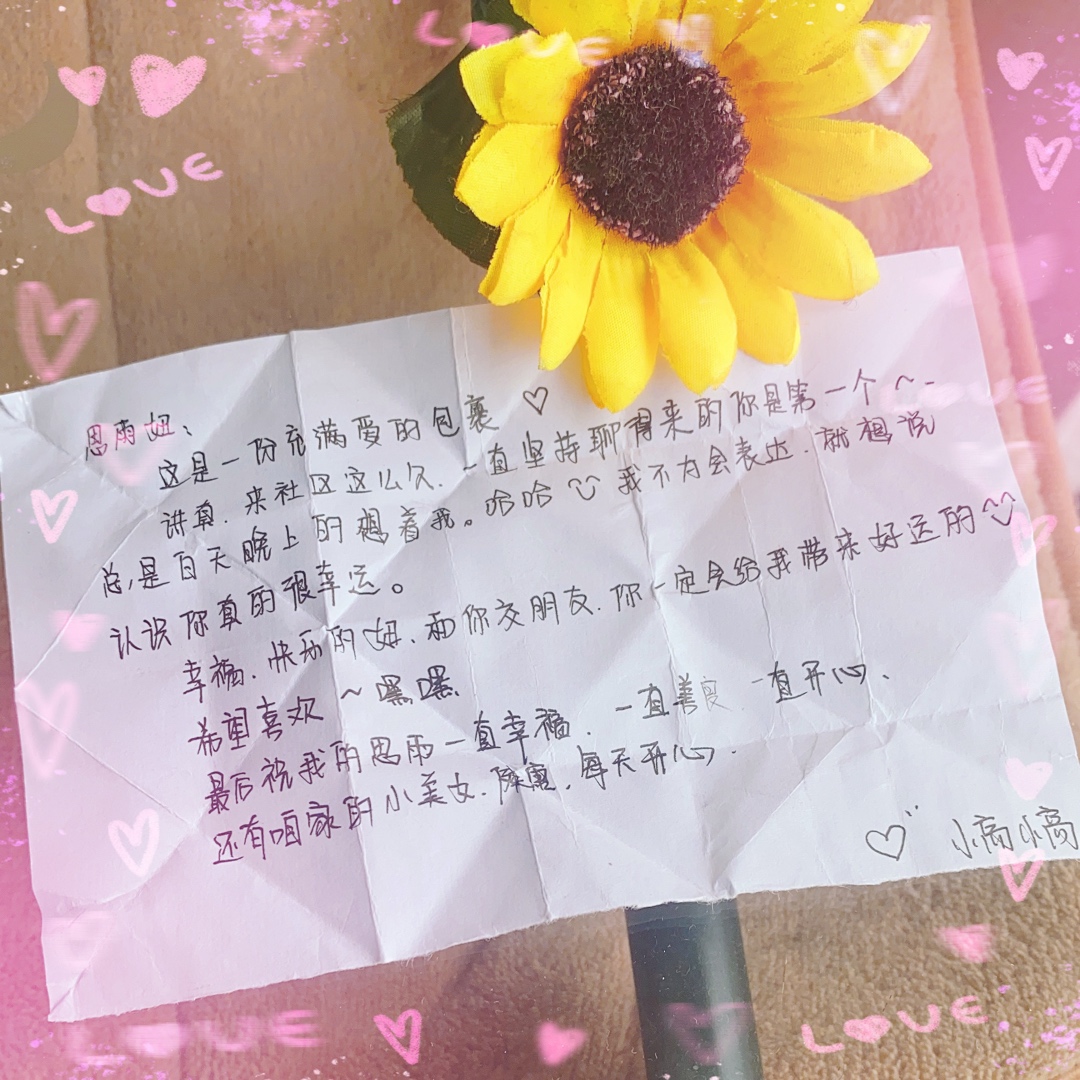 LOVE
LOVE
思雨妞、
这是一份充满爱的包裹 ♡
讲真.来社区这么久.一直坚持聊得来的你是第一个~~
总,是白天晚上的想着我。哈哈 我不为会表达.就想说
认识你真的很幸运。
幸福.快乐的妞.和你交朋友.你一定会给我带来好运的
希望喜欢~嘿嘿.
最后祝我的思雨一直幸福.一直善良 一直开心、
还有咱家的小美女. 每天开心,
♡ 小高小高
LOVE
LOVE
LOVE